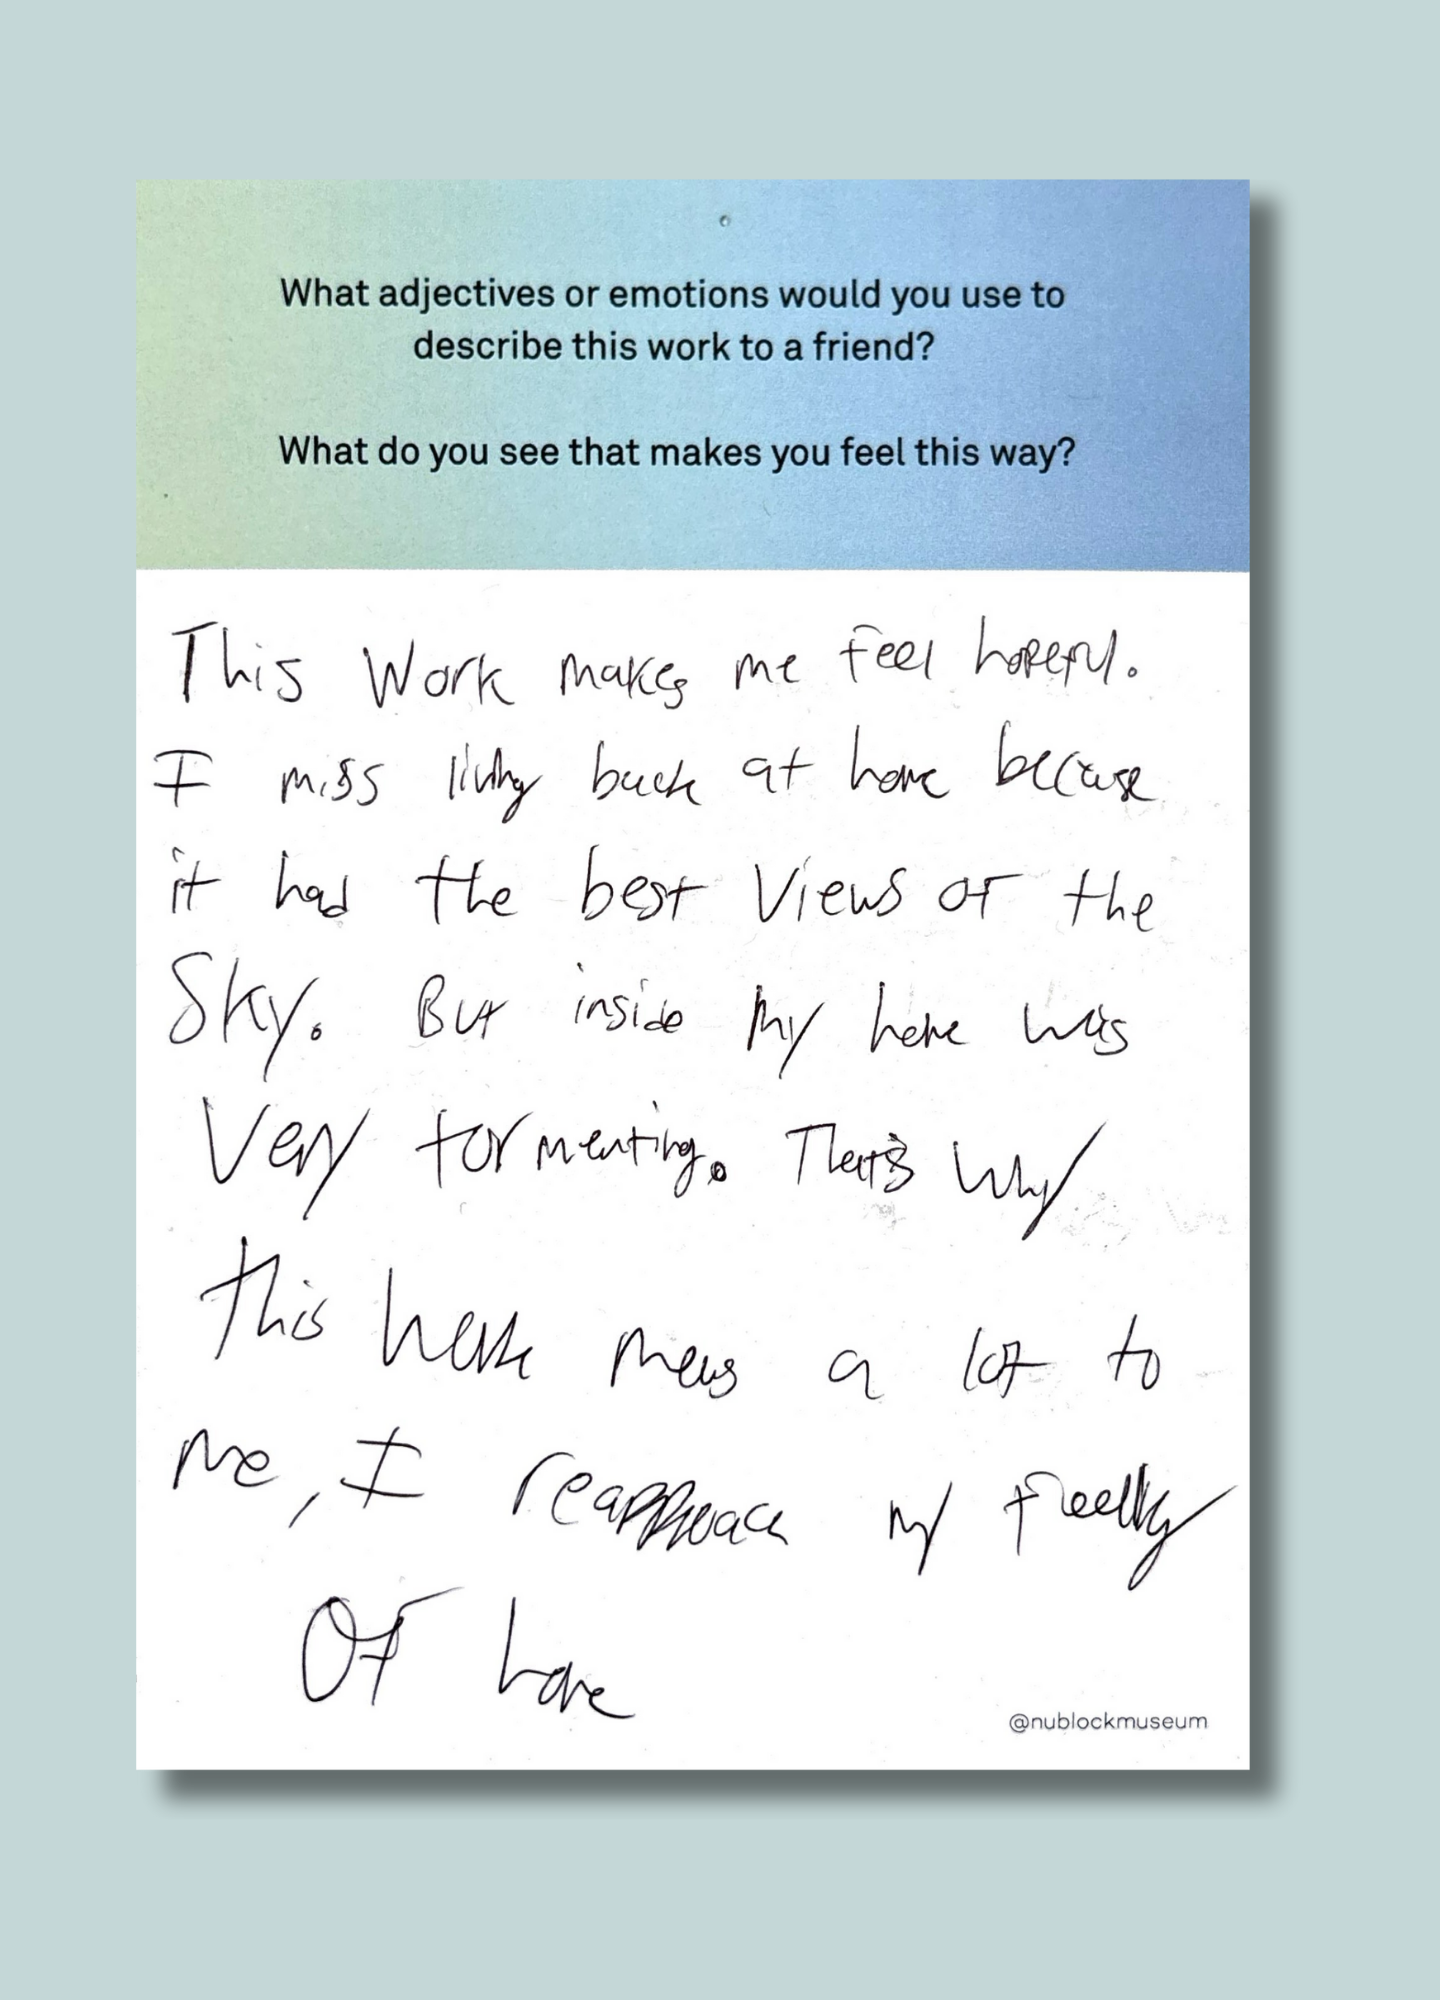 What adjectives or emotions would you use to
describe this work to a friend?
What do you see that makes you feel this way?
This Work makes me feel hopeful.
I miss living back at home because
it had the best Views of the
Sky. But inside my home was
Very tormenting. That's Why
this work means a lot to
me, I reapproach my feeling
Of home
@nublockmuseum